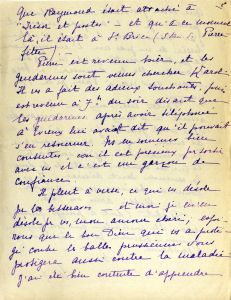 que Raymond était attaché à
"Trésor et postes" - et qu'en ce moment
là, il était à St Brieuc
Pierre est revenu hier, et les
gendarmes sont venus chercher
Il m'a fait des adieux touchants, puis
est revenu à 7h du soir disant que
les gendarmes après avoir téléphoné
à Evreux lui avait dit qu'il pouvait
s'en retourner. Nous en sommes bien
contentes, car il est précieux
avec us et c'est un garçon de
confiance.
Il pleut à verse, ce qui ns désole
pr les blessés - et moi je m'en
désole pr us, mon amour chéri, espé-
rons que le bon Dieu qui us a proté-
gé contre les balles prussiennes vous
protègera aussi contre la maladie
J'ai été bien contente d'apprendre